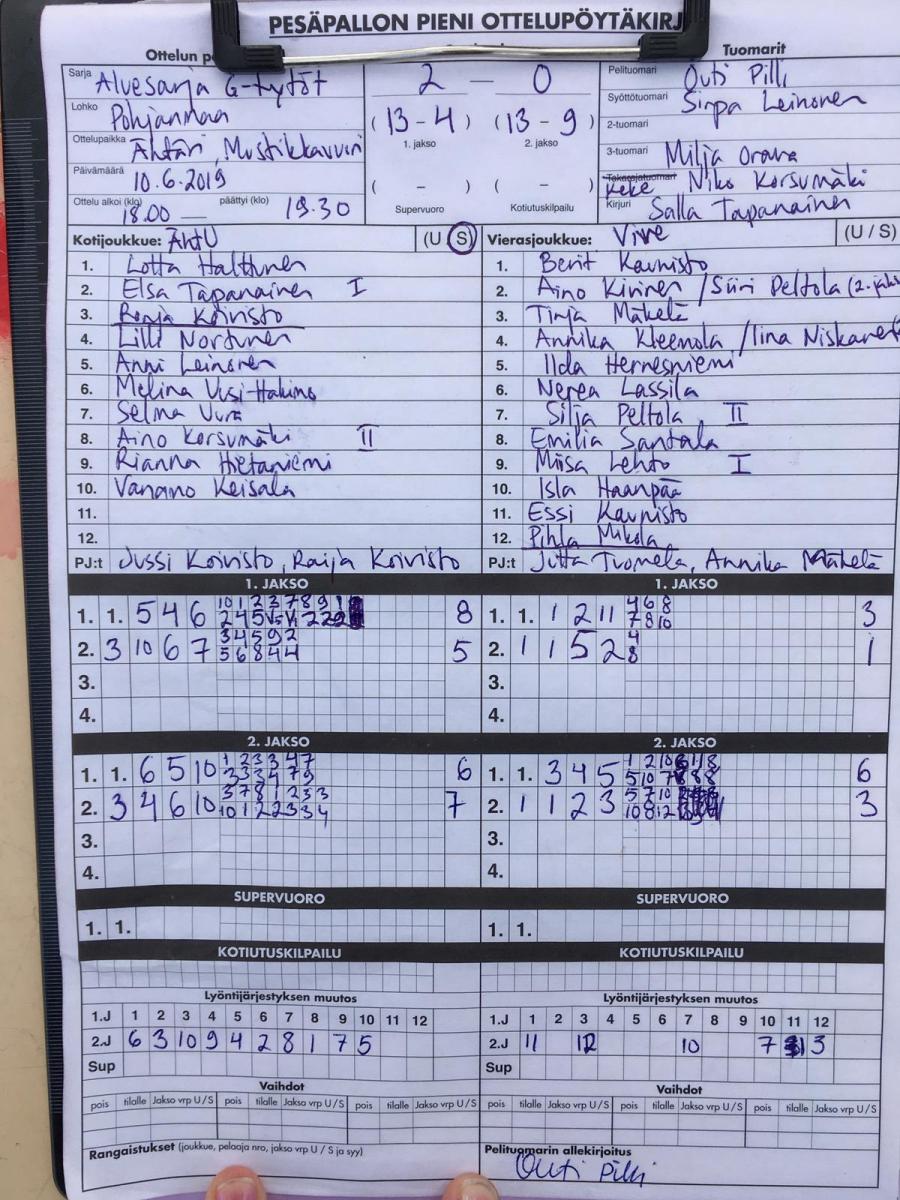 PESÄPALLON PIENI OTTELUPÖYTÄKIRJ
Ottelun p
Tuomarit
Sarja Aluesarja G-tytöt
Lohko Pohjanmaa
Ottelupaikka Ähtäri, Mustikkavuori
Päivämäärä 10.6.2019
Ottelu alkoi (klo) 18.00 — päättyi (klo) 19.30
2 — 0
(13-4) (13-9)
1. jakso 2. jakso
( - ) ( - )
Supervuoro Kotiutuskilpailu
Pelituomari Outi Pilli
Syöttötuomari Sirpa Leinonen
2-tuomari
3-tuomari Milja Orava
Takarajatuomari Keke Niko Korsumäki
Kirjuri Salla Tapanainen
Kotijoukkue: ÄhtU (U / S)
1. Lotta Halttunen
2. Elsa Tapanainen I
3. Ronja Koivisto
4. Lilli Nortunen
5. Anni Leinonen
6. Melina Uusi-Hakimo
7. Selma Uura
8. Aino Korsumäki II
9. Rianna Hietaniemi
10. Vanamo Keisala
11.
12.
PJ:t Jussi Koivisto, Raija Koivisto
Vierasjoukkue: Vire (U / S)
1. Berit Kaunisto
2. Aino Kivinen / Siiri Peltola (2. jakso
3. Tinja Mäkelä
4. Annika Kleemola / Iina Niskanen
5. Ilda Hernesniemi
6. Nerea Lassila
7. Silja Peltola II
8. Emilia Santala
9. Miisa Lehto I
10. Isla Haanpää
11. Essi Kaunisto
12. Pihla Mikola
PJ:t Jutta Tuomela, Annika Mäkelä
1. JAKSO
1. 1. 5 4 6 10 1 2 3 7 8 9 8
2 4 5
2. 3 10 6 7 3 4 5 9 2 5
5 6 8 4 4
3.
4.
1. JAKSO
1. 1. 1 2 11 4 6 8 3
7 8 10
2. 1 1 5 2 4 1
8
3.
4.
2. JAKSO
1. 1. 6 5 10 1 2 3 3 4 7 6
3 3 3 4 7 9
2. 3 4 6 10 3 7 8 1 2 3 3 7
10 1 2 2 3 3 4
3.
4.
2. JAKSO
1. 1. 3 4 5 1 2 10 6
5 10 7
2. 1 1 2 3 5 7 10 3
10 8 12
3.
4.
SUPERVUORO
1. 1.
SUPERVUORO
1. 1.
KOTIUTUSKILPAILU
KOTIUTUSKILPAILU
Lyöntijärjestyksen muutos
1.J 1 2 3 4 5 6 7 8 9 10 11 12
2.J 6 3 10 9 4 2 8 1 7 5
Sup
Lyöntijärjestyksen muutos
1.J 1 2 3 4 5 6 7 8 9 10 11 12
2.J 11 12 10 7 1 3
Sup
Vaihdot
pois tilalle Jakso vrp U/S pois tilalle Jakso vrp U/S pois tilalle Jakso vrp U/S
Vaihdot
pois tilalle Jakso vrp U/S pois tilalle Jakso vrp U/S pois tilalle Jakso vrp U/S
Rangaistukset (joukkue, pelaaja nro, jakso vrp U / S ja syy)
Pelituomarin allekirjoitus
Outi Pilli